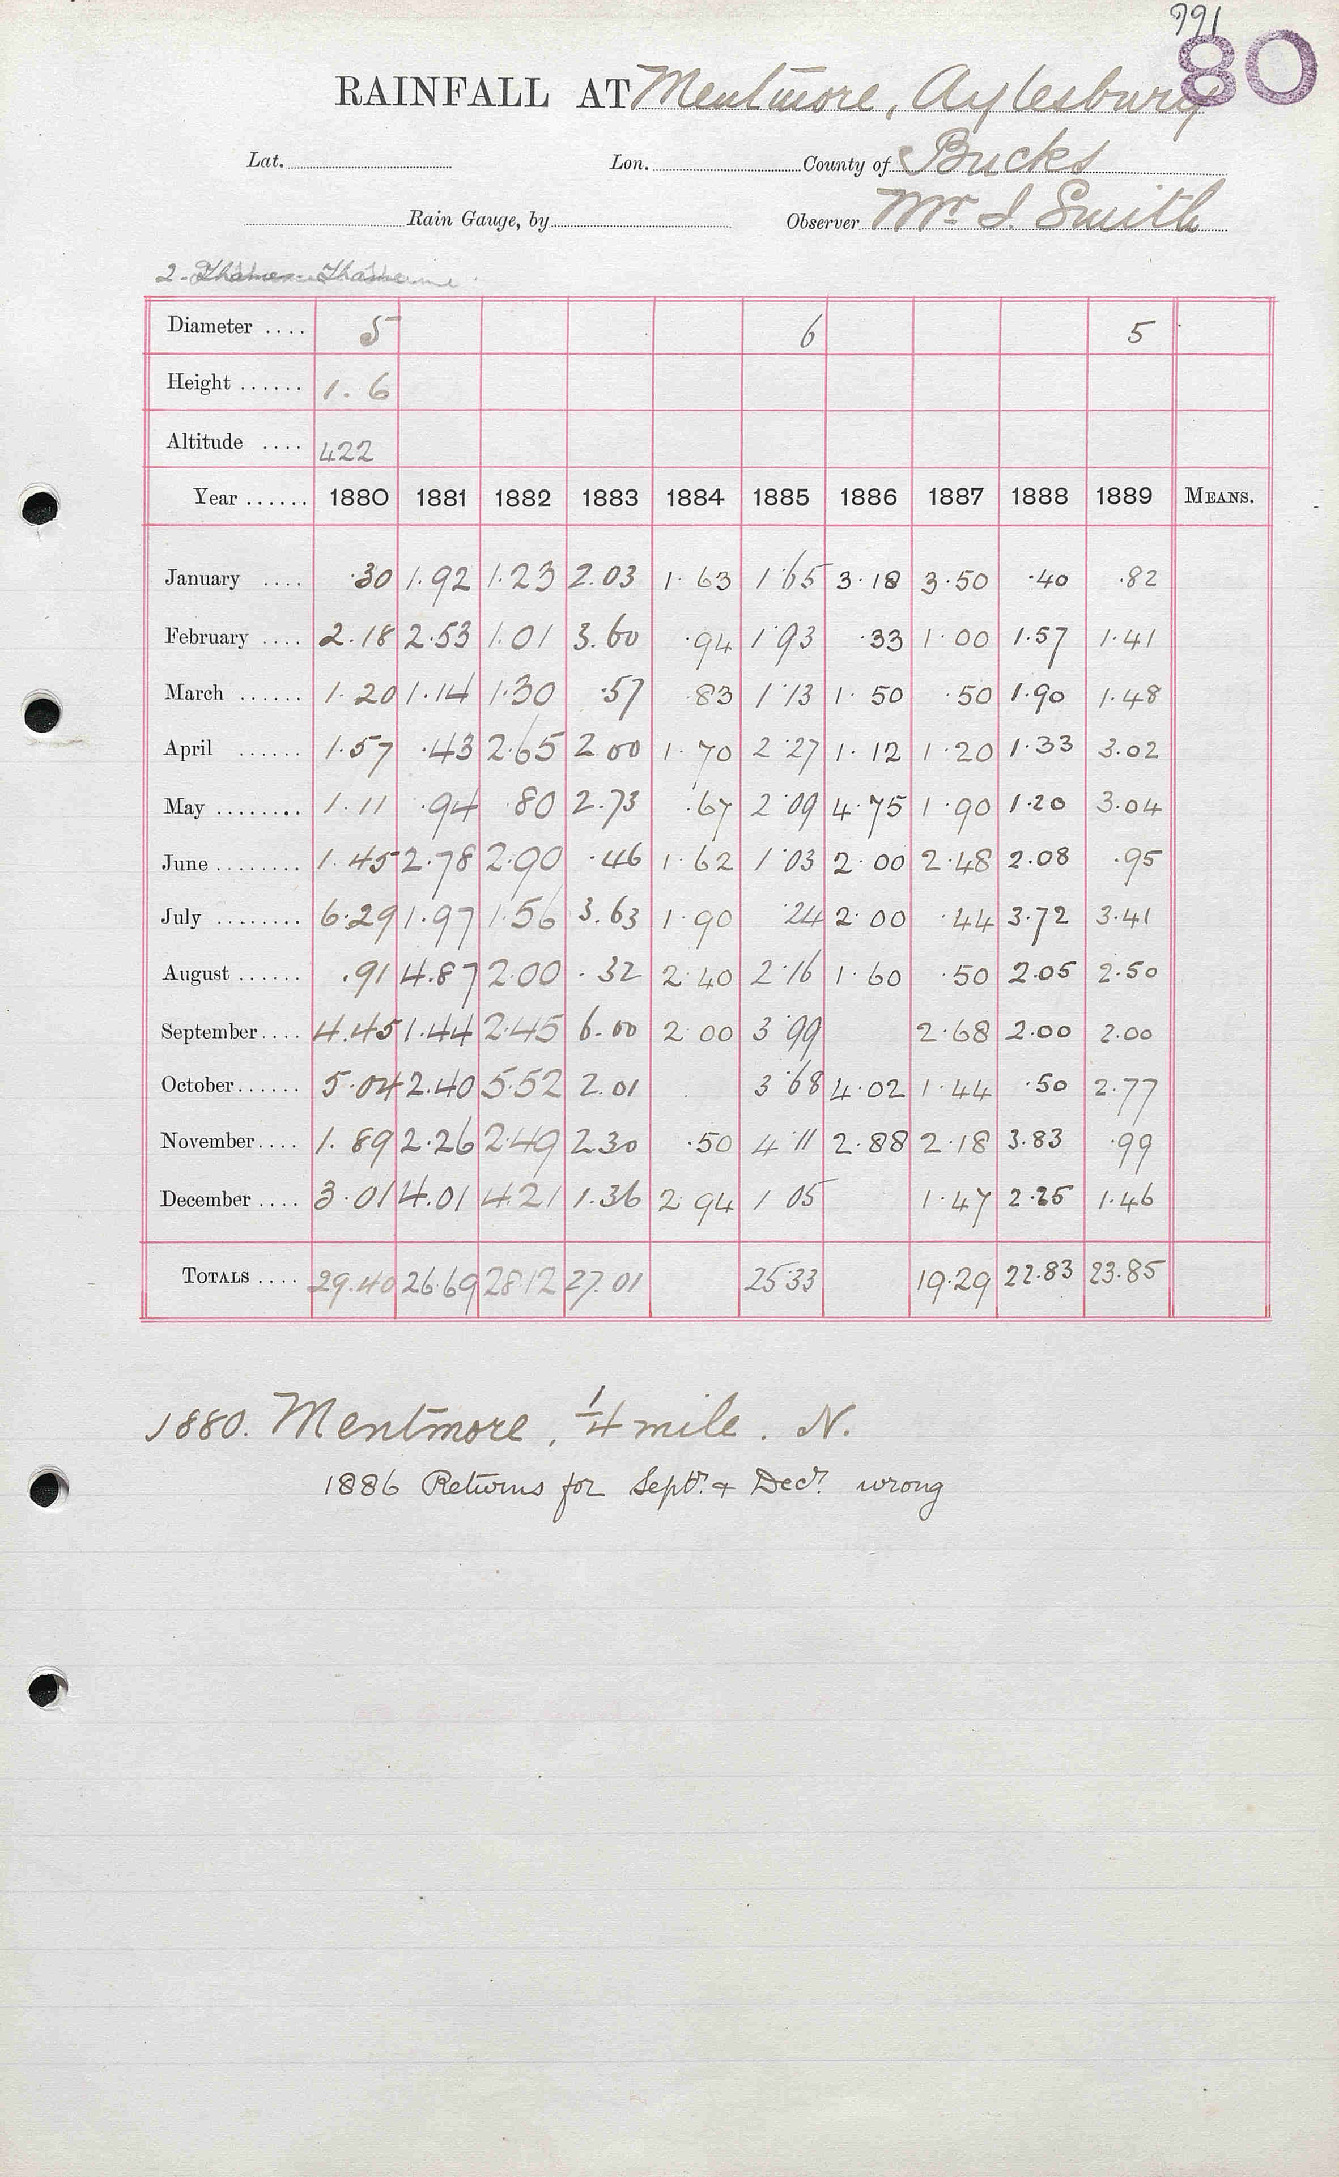 991
80
RAINFALL AT Mentmore, Aylesbury
Lat. Lon. County of Bucks
Rain Gauge, by Observer Mr J. Smith
2.
Diameter .... 5 6 5
Height ...... 1.6
Altitude .... 422
Year ...... 1880 1881 1882 1883 1884 1885 1886 1887 1888 1889 MEANS.
January .... .30 1.92 1.23 2.03 1.63 1.65 3.18 3.50 .40 .82
February .... 2.18 2.53 1.01 3.60 .94 1.93 .33 1.00 1.57 1.41
March ...... 1.20 1.14 1.30 .57 .83 1.13 1.50 .50 1.90 1.48
April ...... 1.57 .43 2.65 2.00 1.70 2.27 1.12 1.20 1.33 3.02
May ........ 1.11 .94 .80 2.73 .67 2.09 4.75 1.90 1.20 3.04
June ........ 1.45 2.78 2.90 .46 1.62 1.03 2.00 2.48 2.08 .95
July ........ 6.29 1.97 1.56 3.63 1.90 .24 2.00 .44 3.72 3.41
August ...... .91 4.87 2.00 .32 2.40 2.16 1.60 .50 2.05 2.50
September .... 4.45 1.44 2.45 6.00 2.00 3.99 2.68 2.00 2.00
October ...... 5.04 2.40 5.52 2.01 3.68 4.02 1.44 .50 2.77
November .... 1.89 2.26 2.49 2.30 .50 4.11 2.88 2.18 3.83 .99
December .... 3.01 4.01 4.21 1.36 2.94 1.05 1.47 2.25 1.46
TOTALS .... 29.40 26.69 28.12 27.01 25.33 19.29 22.83 23.85
1880. Mentmore, 1/4 mile. N.
1886 Returns for Septr. & Decr. wrong